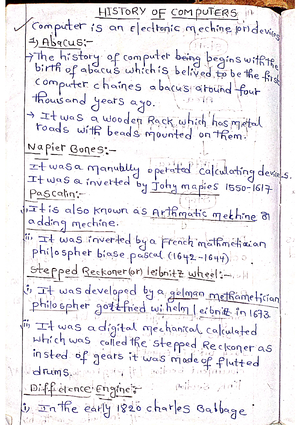 HISTORY OF COMPUTERS
Computer is an electronic mechine (or) devices
1) Abacus:-
→ The history of computer being begins with the
birth of abacus which is belived to be the first
computer chaines abacus around four
thousand years ago.
→ It was a wooden Rack which has metal
roads with beads mounted on them.
Napier Bones:-
It was a manually operated calculating devices.
It was a inverted by Johy mapies 1550-1617
Pascalin:-
i, It is also known as Arthmatic mekhine or
adding mechine.
ii, It was inverted by a French mathmetician
philospher biase pascal (1642-1644)
Stepped Reckoner (or) leibnitz wheel:-
i, It was developed by a gelman methametician
philospher gottfried wilhelm leibnitz in 1673
iii It was a digital mechanical calculated
which was called the stepped Reckoner as
insted of gears it was made of flutted
drums.
Difference Engine:-
i, In the early 1820 charles Babbage